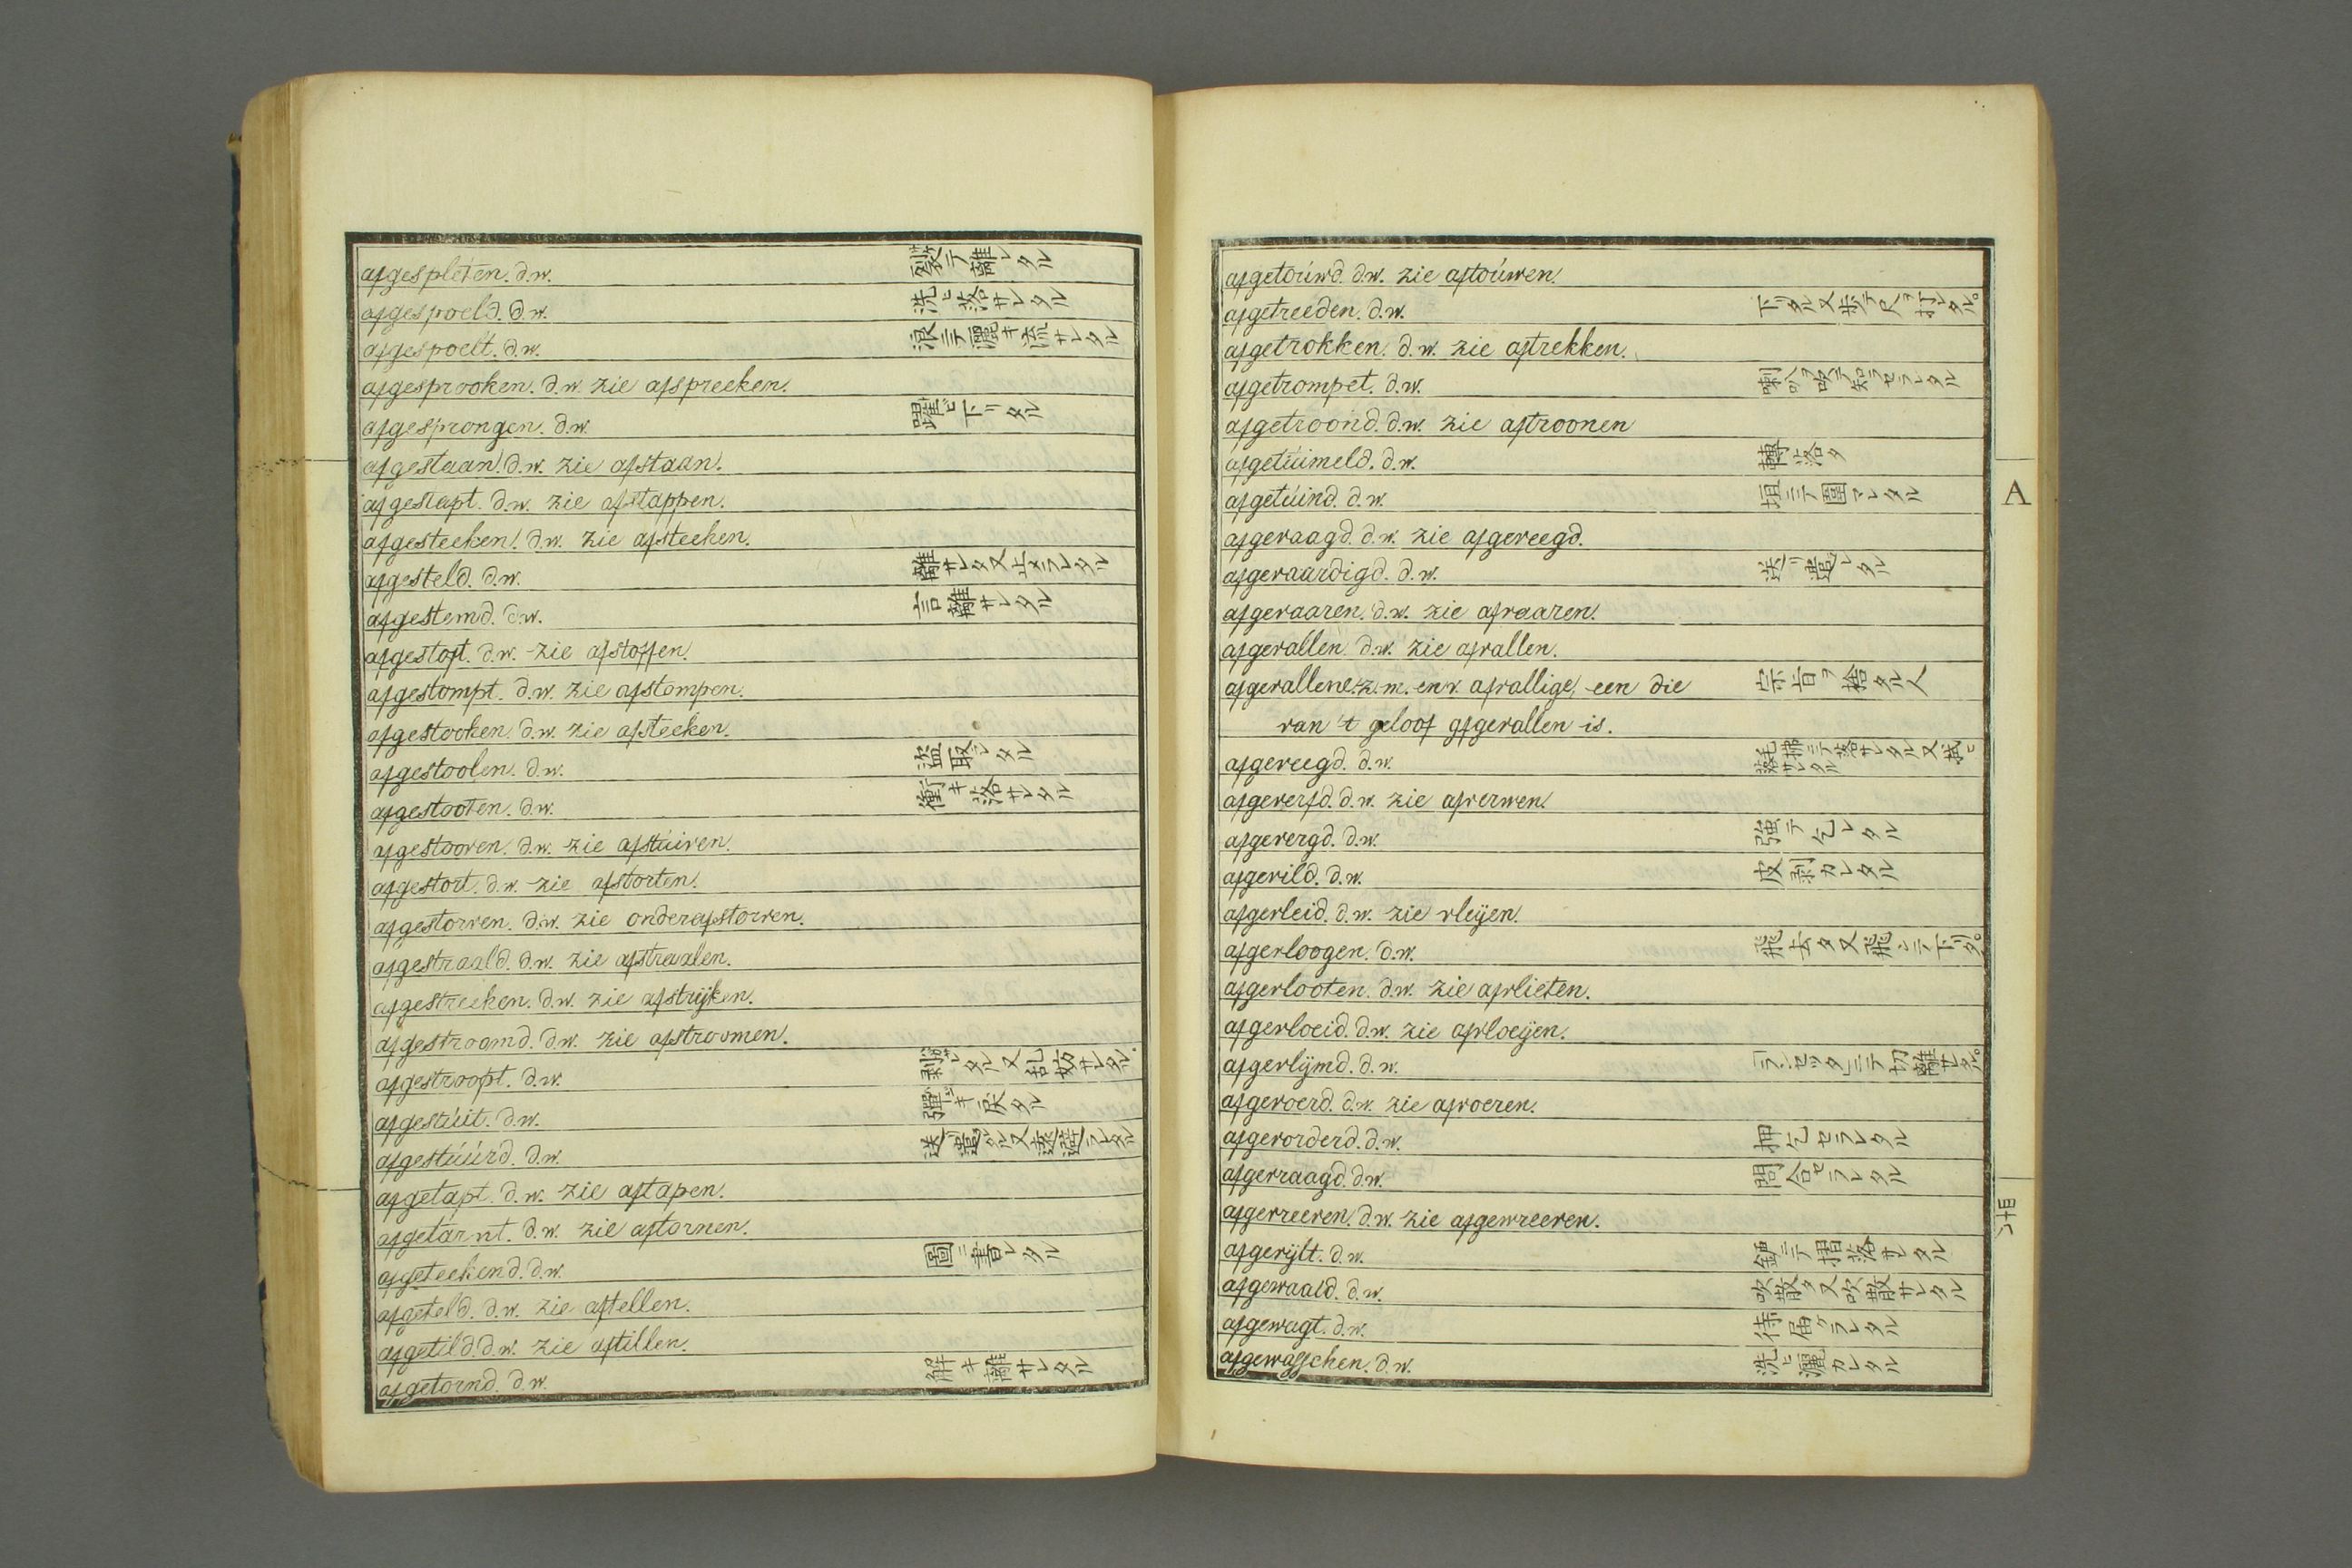 afgespleten. d.w. 裂テ離レタル
afgespoeld. d.w. 洗ヒ落サレタル
afgespoelt. d.w. 浪ニテ灑キ流サレタル
afgesprooken. d.w. zie afspreeken.
afgesprongen. d.w. 躍ビ下リタル
afgestaan. d.w. zie afstaan.
afgestapt. d.w. zie afstappen.
afgesteeken. d.w. zie afsteeken.
afgesteld. d.w. 離サレタ又止メラレタル
afgestemd. d.w. 言離サレタル
afgestoft. d.w. zie afstoffen.
afgestompt. d.w. zie afstompen.
afgestooken. d.w. zie afsteeken.
afgestoolen. d.w. 盗取レタル
afgestooten. d.w. 衝キ落サレタル
afgestooven. d.w. zie afstuiven.
afgestort. d.w. zie afstorten.
afgestorven. d.w. zie onderafstorven.
afgestraald. d.w. zie afstraalen.
afgestreeken. d.w. zie afstrijken.
afgestroomd. d.w. zie afstroomen.
afgestroopt. d.w. 剥ガレタル又乱妨サレタル。
afgestúit. d.w. 彈ジキ戻タル
afgestúúrd. d.w. 送リ遣レタル又遠避ラレタル
afgetapt. d.w. zie aftapen.
afgetarnt. d.w. zie aftornen.
afgeteekend. d.w. 圖ニ書レタル
afgeteld. d.w. zie aftellen.
afgetild. d.w. zie aftillen.
afgetornd. d.w. 解キ離サレタル
afgetoúwd. d.w. zie aftoúwen.
afgetreeden. d.w. 下リタル又歩テ尺ヲ打レタル。
afgetrokken. d.w. zie aftrekken.
afgetrompet. d.w. 喇叭ヲ吹テ知ラセラレタル
afgetroond. d.w. zie aftroonen
afgetúimeld. d.w. 轉ビ落タ
afgetúind. d.w. 垣ニテ圍マレタル
afgevaagd. d.w. zie afgeveegd.
afgevaardigd. d.w. 送リ遣レタル
afgevaaren. d.w. zie afvaaren.
afgevallen. d.w. zie afvallen.
afgevallene. z.m. en v. afvallige, een die 宗旨ヲ捨タル人
van 't geloof afgevallen is.
afgeveegd. d.w. 毛拂ニテ落サレタル又拭ヒ落サレタル
afgeverfd. d.w. zie afverwen.
afgevergd. d.w. 強テ乞レタル
afgevild. d.w. 皮剥カレタル
afgevleid. d.w. zie vleijen.
afgevloogen. d.w. 飛去タ又飛ビテ下リタ。
afgevlooten. d.w. zie afvlieten.
afgevloeid. d.w. zie afvloeijen.
afgevlijmd. d.w. 「ランセッタ」ニテ切離サレタル。
afgevoerd. d.w. zie afvoeren.
afgevorderd. d.w. 押乞セラレタル
afgevraagd. d.w. 問合セラレタル
afgevreeven. d.w. zie afgewreeven.
afgevijlt. d.w. 鑢ニテ摺落サレタル
afgewaaid. d.w. 吹散タ又吹散サレタル
afgewagt. d.w. 待届ケラレタル
afgewasschen. d.w. 洗ヒ灑カレタル
A